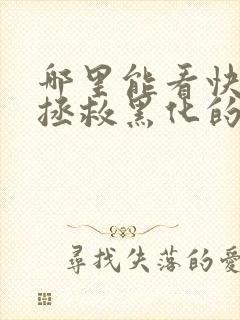 哪里能看快
拯救黑化的
尋找失落的愛